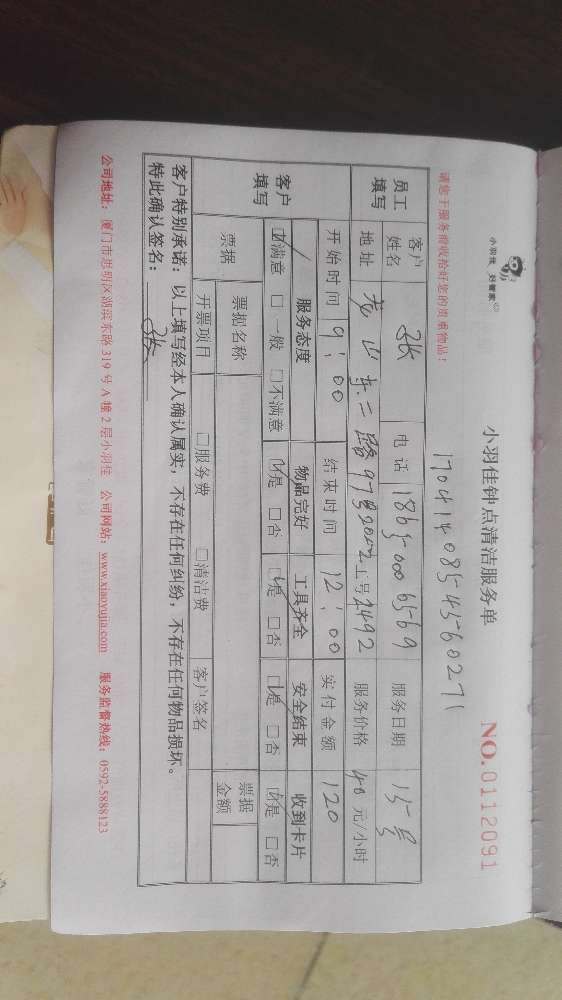 小羽佳 好管家
小羽佳钟点清洁服务单
NO.0112091
请您于服务前收拾好您的贵重物品！
1704140854560271
员工填写 客户姓名 张 电话 18650006569 服务日期 15号
地址 东二路97号202 工号2492 服务价格 40 元/小时
开始时间 9:00 结束时间 12:00 实付金额 120
客户填写 服务态度 物品完好 工具齐全 安全结束 收到卡片
☑满意 □一般 □不满意 ☑是 □否 ☑是 □否 ☑是 □否 ☑是 □否
票据 票据名称 票据金额
开票项目 □服务费 □清洁费 客户签名
客户特别承诺：以上填写经本人确认属实，不存在任何纠纷，不存在任何物品损坏。
特此确认签名： 张
公司地址：厦门市思明区湖滨东路319号A幢2层小羽佳 公司网站：www.xiaoyujia.com 服务监督热线：0592-5888123